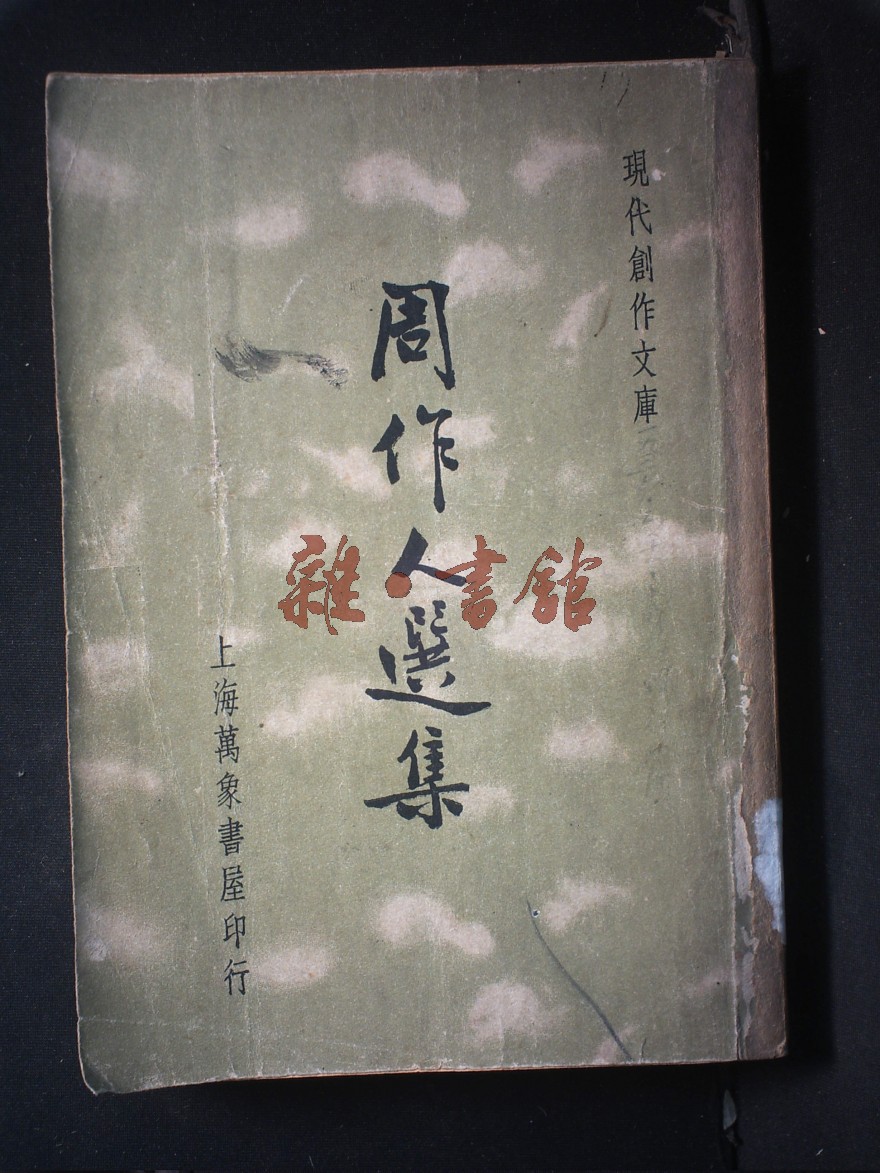 現代創作文庫
周作人選集
上海萬象書屋印行
雜·書館